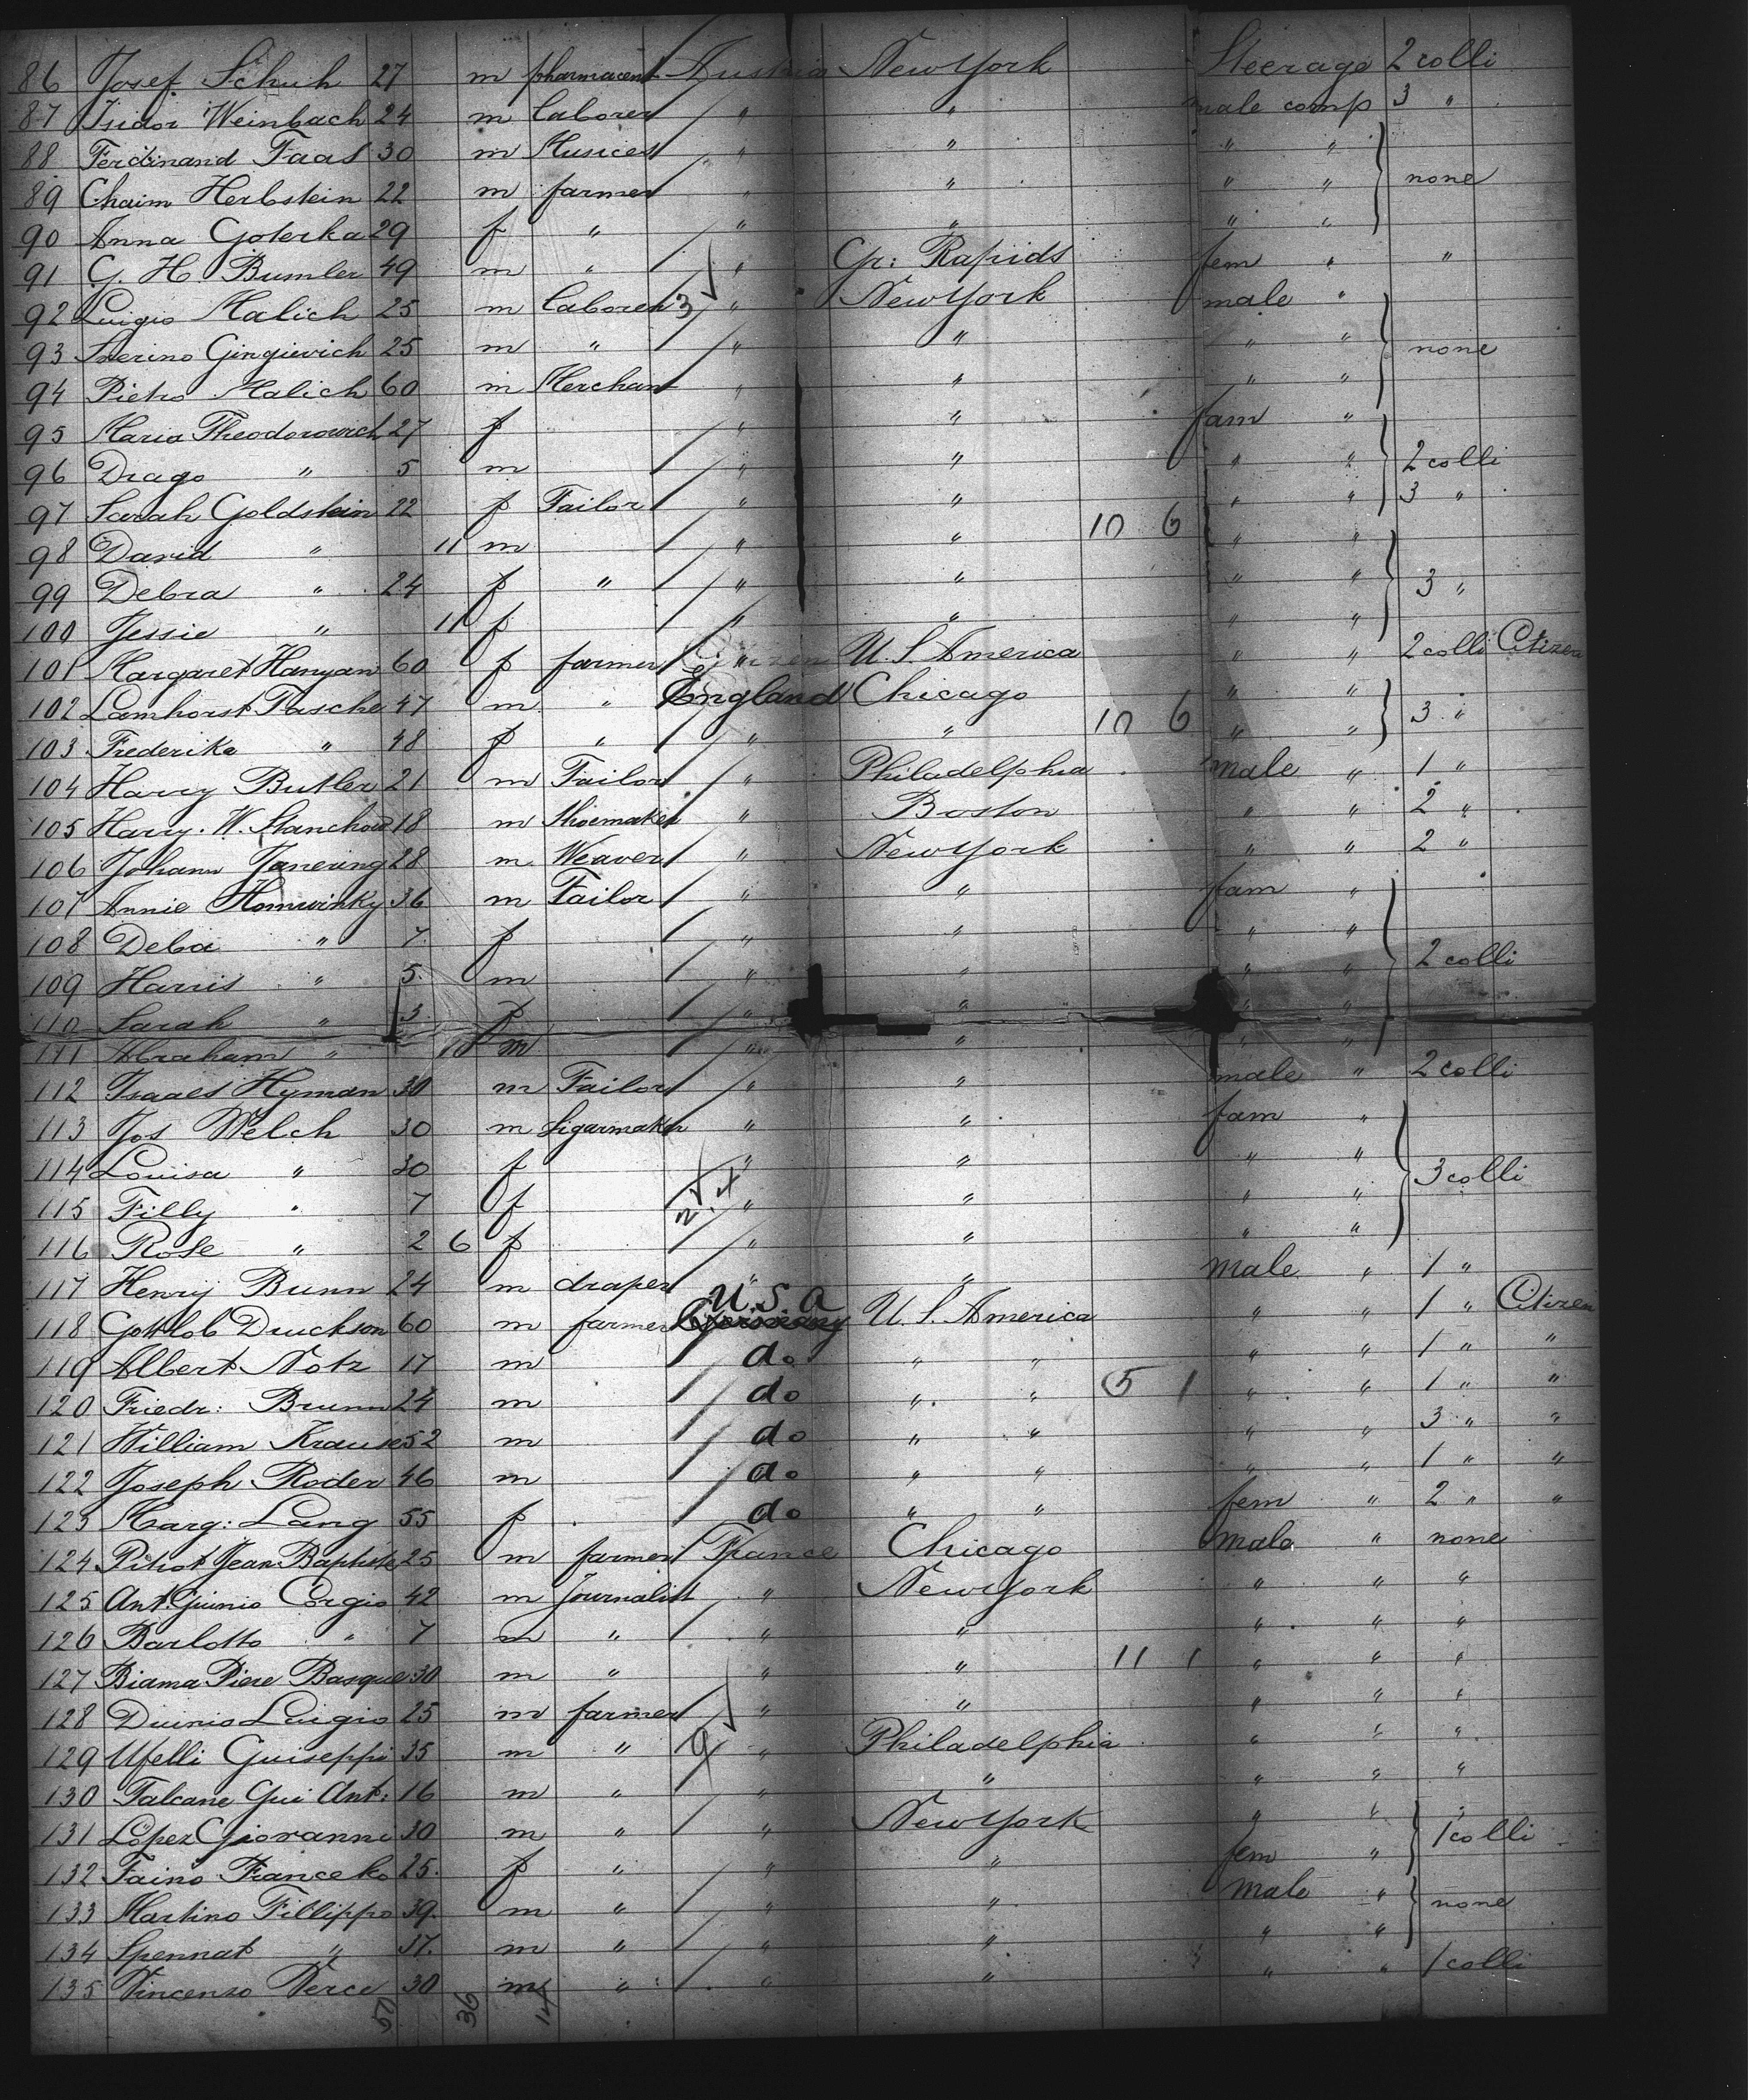 86 Josef Schuh 27 m pharmaceut Austria New York Steerage 2 colli
87 Isidor Weinbach 24 m laborer " " male comp 3 "
88 Ferdinand Faas 30 m Musices " " " "
89 Chaim Herbstein 22 m farmer " " " " none
90 Anna Goterka 29 f " " " " "
91 G. H. Bumler 49 m " " Gr: Rapids fem " "
92 Luigio Malich 25 m laborer 3 " New York male "
93 Gingievich 25 m " " " " " none
94 Pietro Malich 60 m Merchant " " " "
95 Maria Theodorowich 27 f " " fam "
96 Drago " 5 m " " " " 2 colli
97 Sarah Goldstein 22 f Tailor " " " " 3 "
98 David " 11 m " " 10 6 " "
99 Debra " 24 f " " " " " 3 "
100 Jessie " 11 f " " " "
101 Margaret Hanyan 60 f farmer " U. S. America " " 2 colli Citizen
102 Lamhorst Pasche 47 m " England Chicago " " 3 "
103 Frederike " 48 f " " " 10 6 " "
104 Harry Butler 21 m Tailor " Philadelphia male " 1 "
105 Harry. W. Stanchow 18 m Shoemaker " Boston " " 2 "
106 Johann Janering 28 m Weaver " New York " " 2 "
107 Annie Homwinky 36 m Tailor " " fam "
108 Deba " 7 f " " " "
109 Harris " 5 m " " " " 2 colli
110 Sarah " 3 f " " " "
111 Abraham " m " " " "
112 Isaaes Hyman 30 m Tailor " " male " 2 colli
113 Jos Welch 30 m Sigarmaker " " fam "
114 Louisa " 30 f " " " " 3 colli
115 Tilly " 7 f " " " "
116 Rose " 2 6 f " " " "
117 Henry Bunn 24 m draper " " male " 1 "
118 Gottlob Druckson 60 m farmer Germany U.S.A U. S. America " " 1 " Citizen
119 Albert Notz 17 m do " " " " 1 " "
120 Friedr: Brunn 24 m do " " 5 1 " " 1 " "
121 William Krause 52 m do " " " " 3 " "
122 Joseph Roder 46 m do " " " " 1 " "
123 Marg: Lang 55 f do " " fem " 2 " "
124 Pitiot Jean Baptiste 25 m farmer France Chicago male " none
125 Ant. Giunio Corgio 42 m Journalist " New York " " "
126 Barlotto " 7 m " " " " " "
127 Biama Piere Basque 30 m " " " 11 1 " " "
128 Duinio Luigio 25 m farmer " " " " "
129 Ufelli Guiseppi 35 m " 9 " Philadelphia " " "
130 Falcane Gui Ant: 16 m " " " " " "
131 Lopez Giovanni 30 m " " New York " " 1 colli
132 Faino Franceko 25 f " " " fem "
133 Martino Fillippo 39 m " " " male " none
134 Spennat " 37 m " " " " "
135 Vincenzo Perce 30 m " " " " " 1 colli
50 36 14